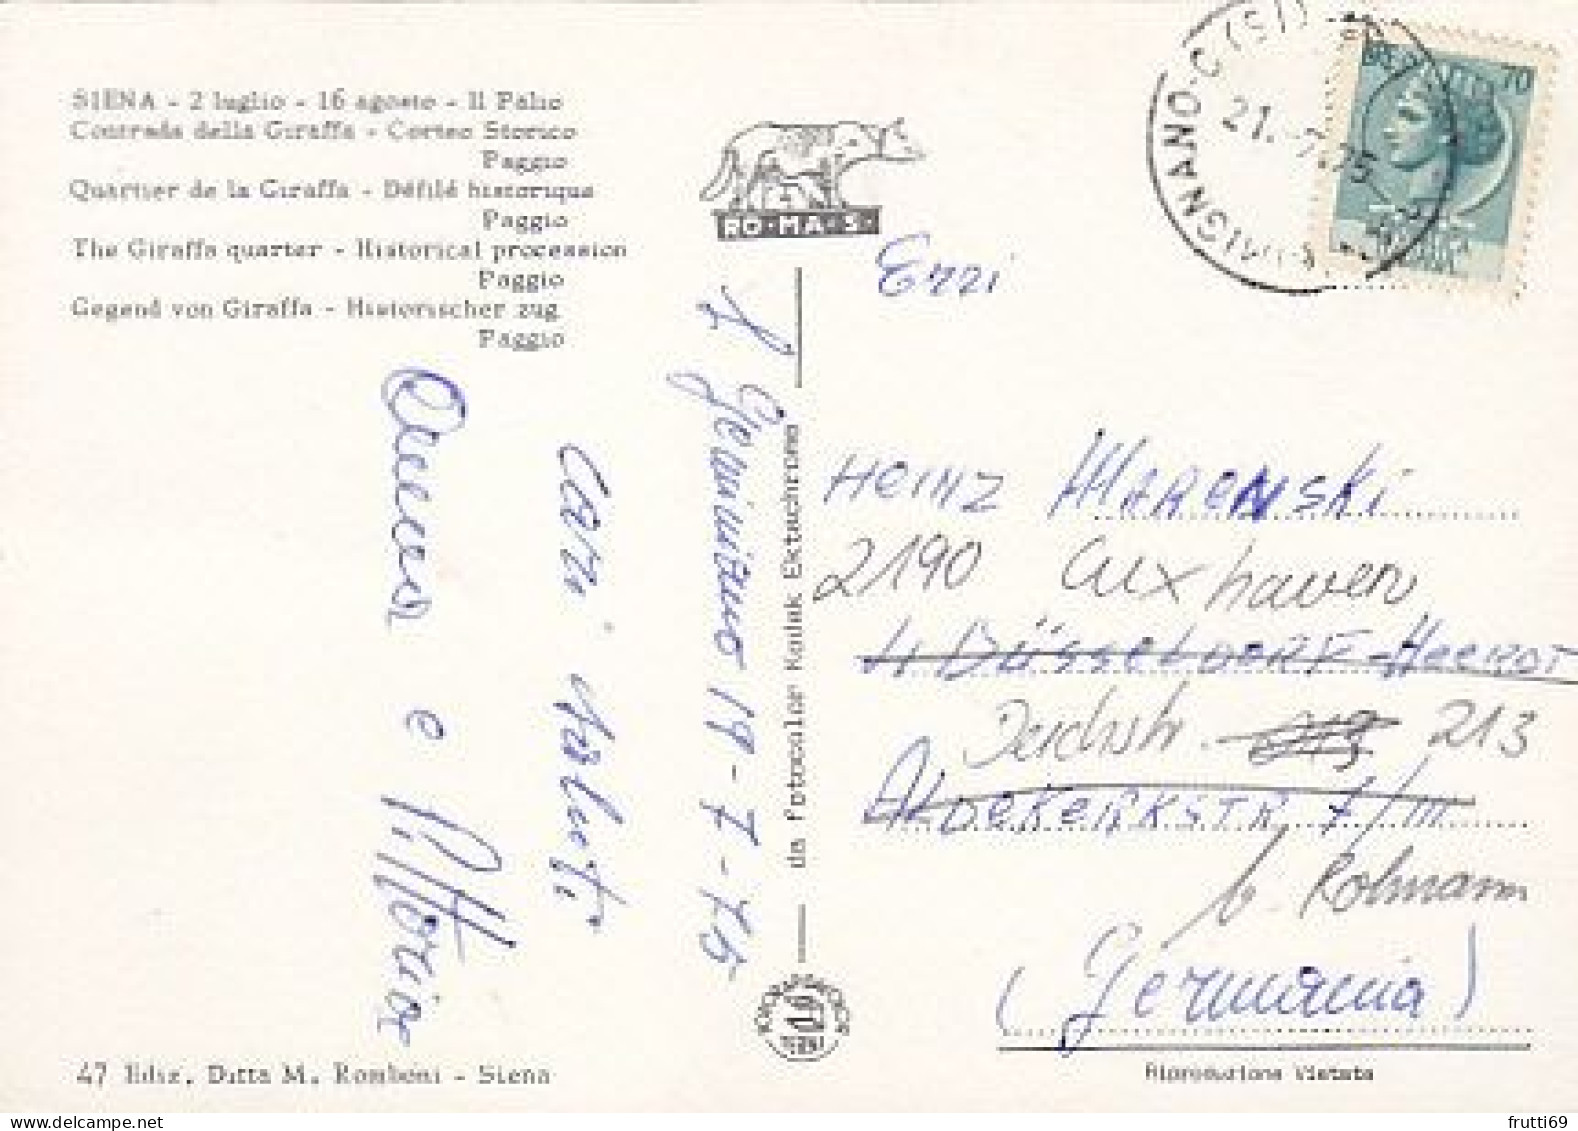 SIENA - 2 luglio - 16 agosto - Il Palio
Contrada della Giraffa - Corteo Storico
Paggio
Quartier de la Giraffa - Défilé historique
Paggio
The Giraffa quarter - Historical procession
Paggio
Gegend von Giraffa - Historischer zug
Paggio
RO-MA-S.
S. Gimignano 19-7-75
Cari saluti
e Vittorio
da Fotocolor Kodak Ektachrome
47 Ediz. Ditta M. Romboni - Siena
21.-7.75
70
HEINZ MARENSKI
2190 Cuxhaven
4 DÜSSELDORF-HEERDT
Deichstr. 213
ALDEKERKSTR 7/III
b. Rohmann
(Germania)
Riproduzione Vietata
frutti69